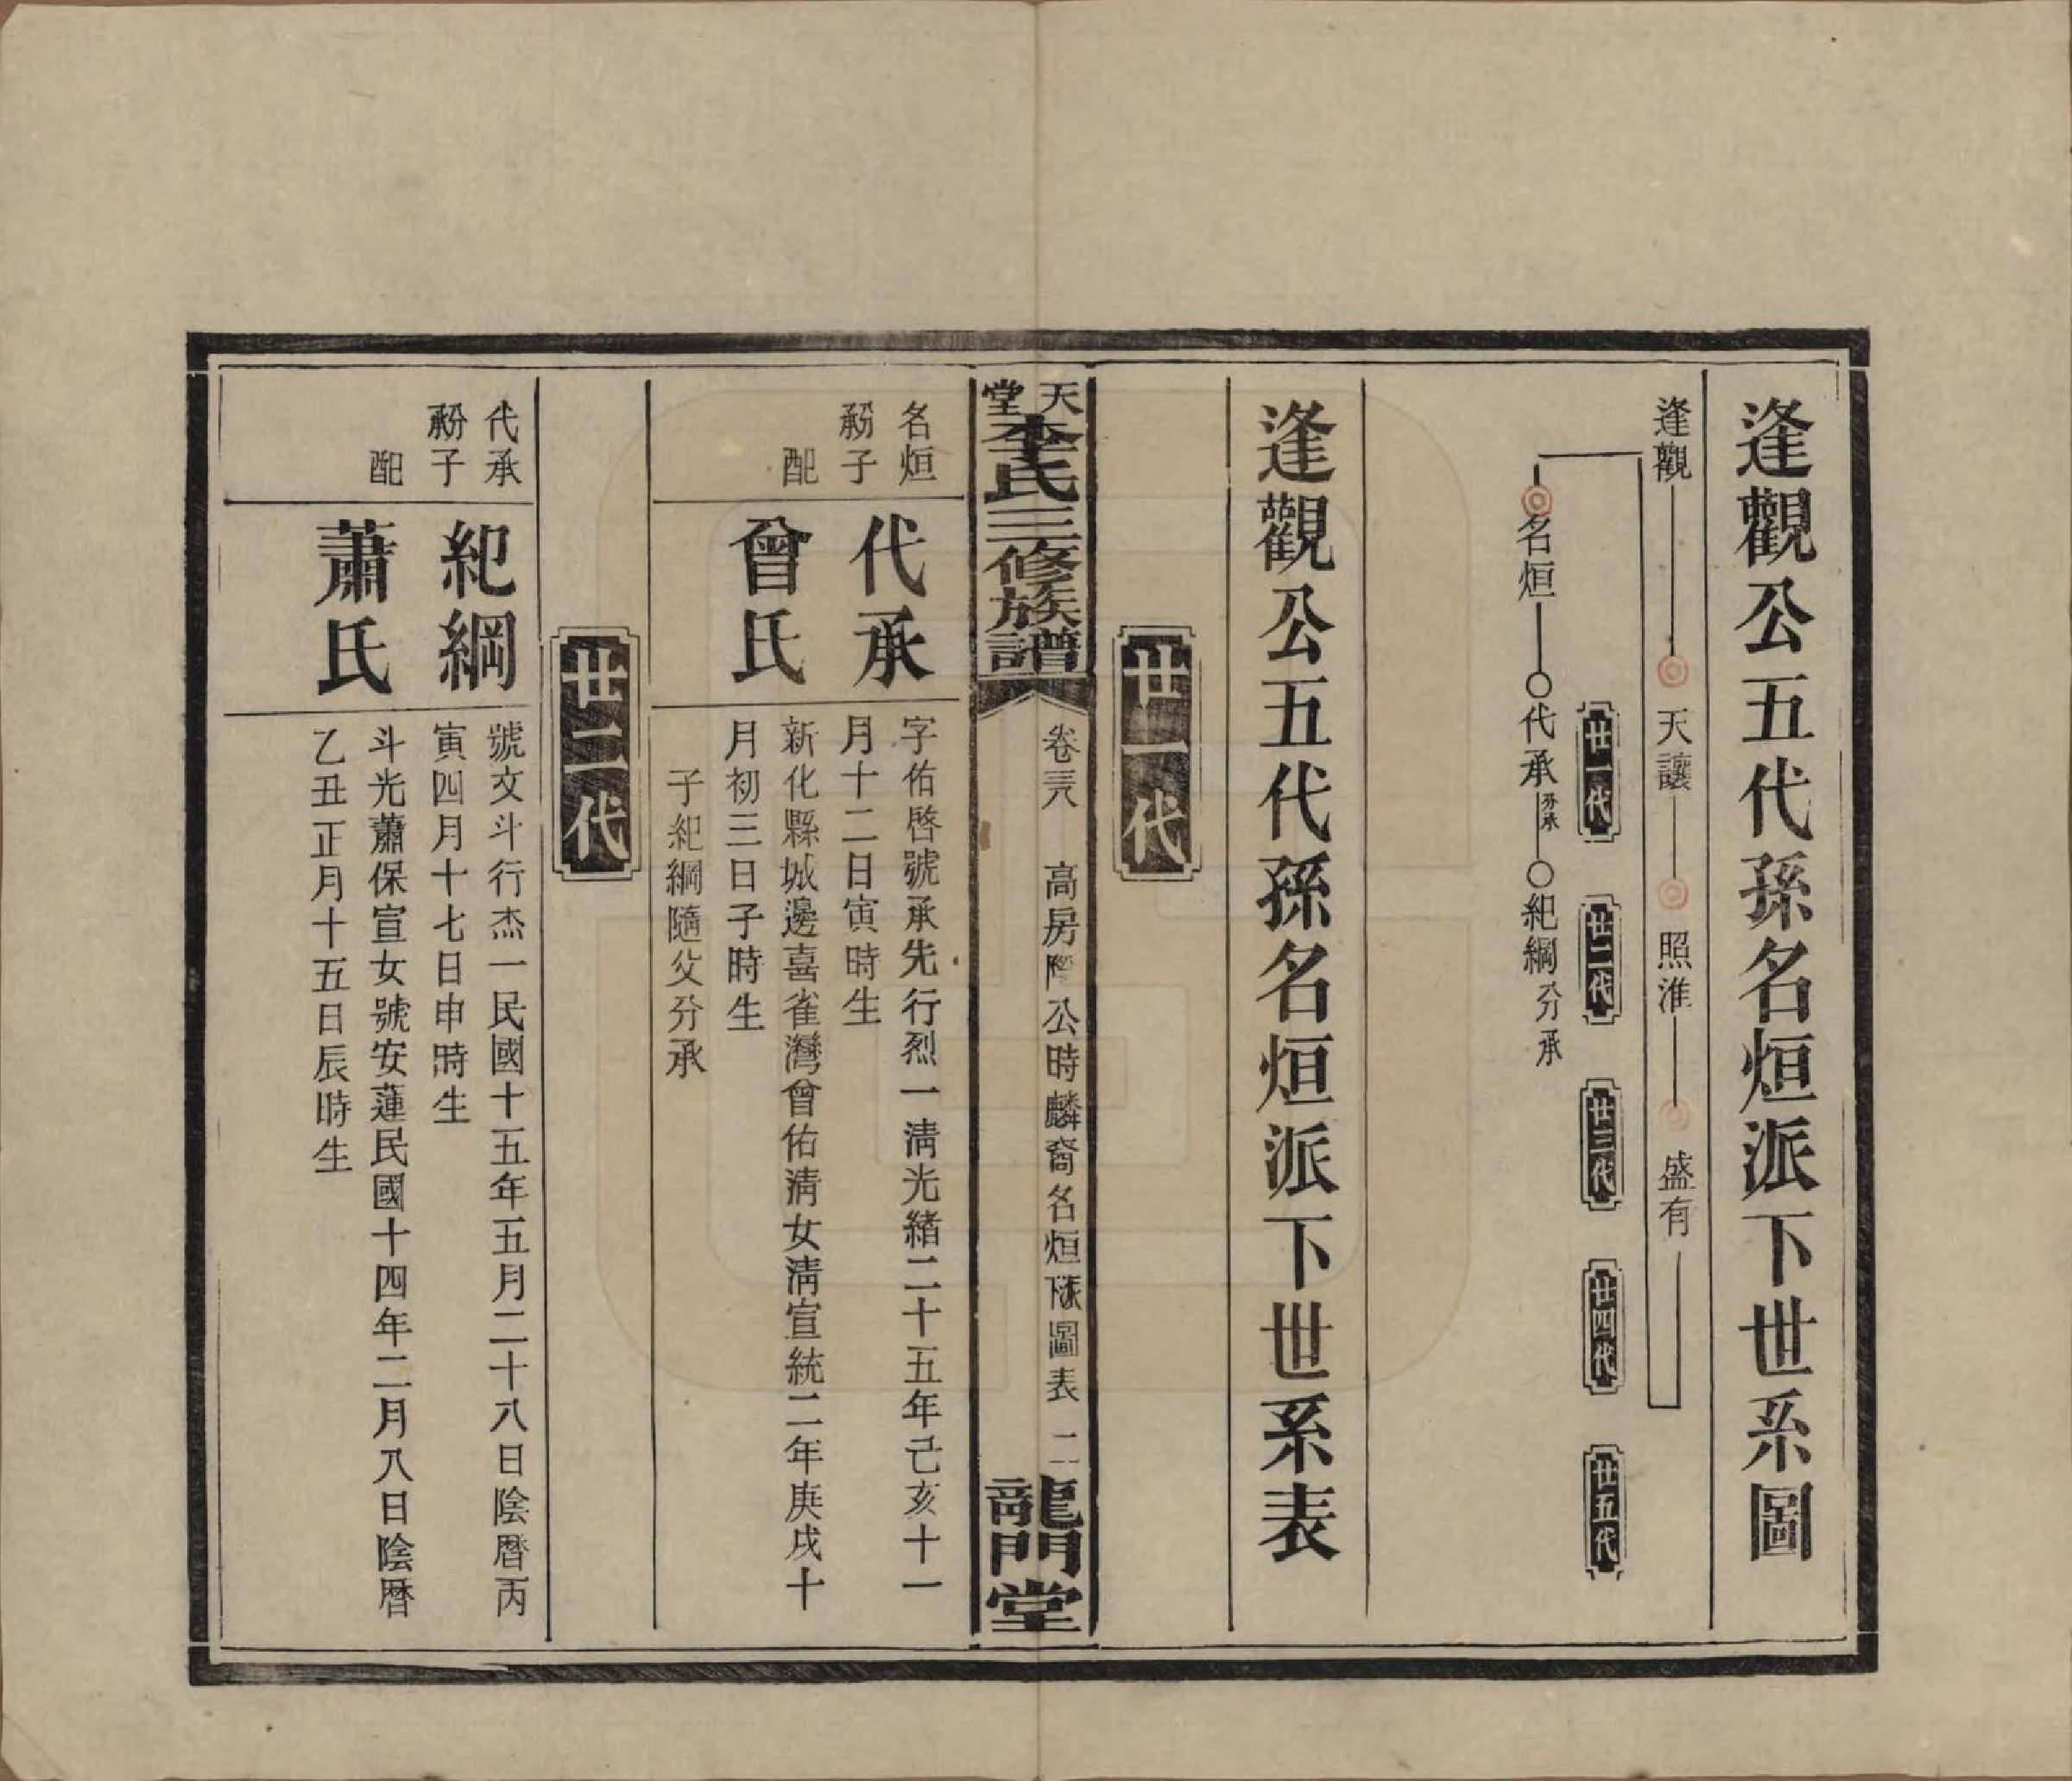 逢觀公五代孫名烜派下世系圖
逢觀 天讓 照淮 盛有
廿一代 廿二代 廿三代 廿四代 廿五代
名烜 代承 分承 紀綱 分承
逢觀公五代孫名烜派下世系表
廿一代
天堂李氏三修族譜 卷三八 高房階公時麟裔名烜派下圖表 二 龍門堂
名烜 代承 字佑啓號承先行烈一淸光緒二十五年己亥十一
承分子 月十二日寅時生
配 曾氏 新化縣城邊喜雀灣曾佑淸女淸宣統二年庚戌十
月初三日子時生
子紀綱隨父分承
廿二代
代承 紀綱 號文斗行杰一民國十五年五月二十八日陰曆丙
承分子 寅四月十七日申時生
配 蕭氏 斗光蕭保宣女號安蓮民國十四年二月八日陰曆
乙丑正月十五日辰時生